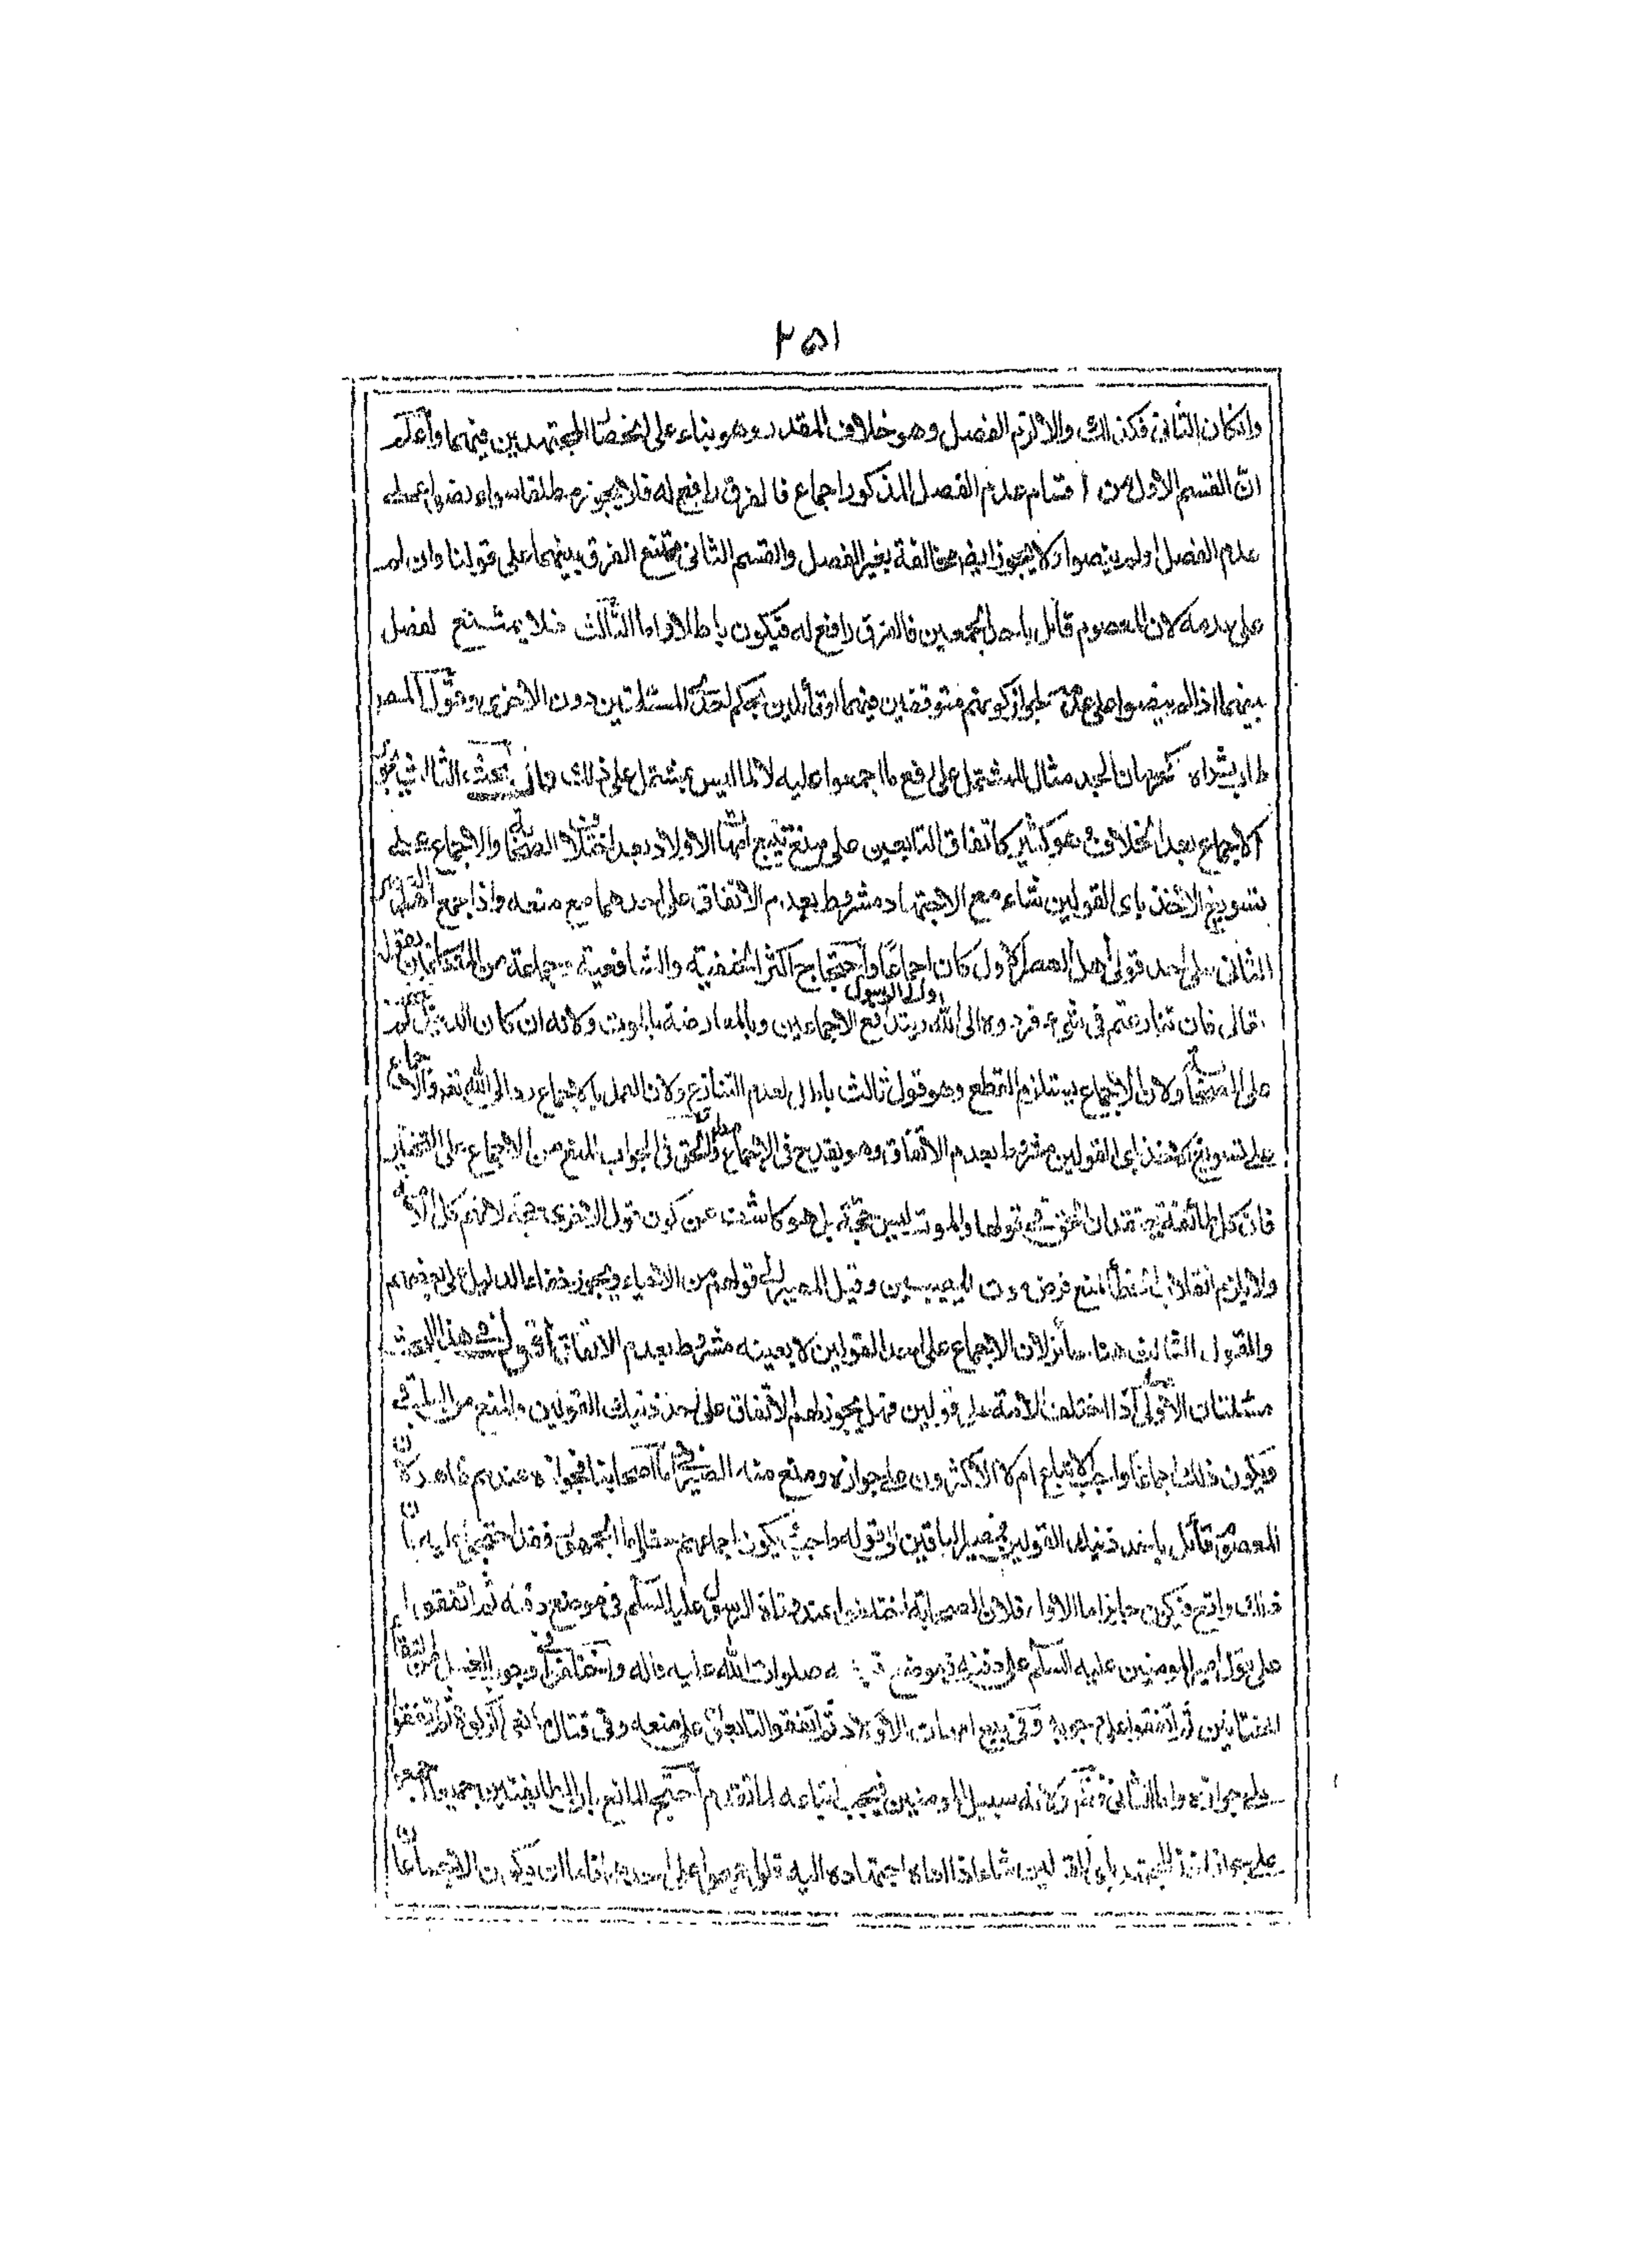 ٢٥١
وانكان الثانى فكذلك والا لزم الفصل وهو خلاف المقدر وهو بناء على انحصار المجتهدين فيهما واعلم
انّ القسم الاول من اقسام عدم الفصل المذكور اجماع فالفرق رافع له فلا يجوز مطلقا سواء نصوا على
عدم الفصل اولم ينصوا ولا يجوز ايضا مخالفة بغير الفصل والقسم الثانى يمتنع الفرق بينهما على قولنا وان لم
على عدمه لان المعصوم قائل باحد الجمعين فالفرق رافع له فيكون باطلا واما الثالث فلا يمتنع لفصل
بينهما اذا لم ينصوا على عدمه لجواز كونهم متوقفين فيهما او قائلين بحكم احدى المسئلتين دون الاخرى وقول المصر
طاب ثراه كحرمان الجد مثال للمشتمل على رفع ما اجمعوا عليه لا لما ليس يشتمل على ذلك قال البحث الثالث في
الاجماع بعد الخلاف وهو كثير كاتفاق التابعين على منع بيع امهات الاولاد بعد اختلاف الصحابة والاجماع على
تسويغ الاخذ باى القولين شاء مع الاجتهاد مشروط بعدم الاتفاق على احدهما مع منعه واذا اجمع اهل العصر
الثانى على احد قولى اهل العصر الاول كان اجماعا واحتجاج اكثر الحنفية والشافعية وجماعة من المتكلمين بقوله
تعالى فان تنازعتم فى شىء فردوه الى الله والى الرسول وبتدافع الاجماعين وبالمعارضة بالموت ولانه ان كان الدليل لم
على الصحابة ولان الاجماع يستلزم القطع وهو قول ثالث باطل لعدم التنازع ولان العمل بالاجماع رد الى الله تعالى والاجماع
على تسويغ الاخذ باى القولين مشروط بعدم الاتفاق وهو يقدح فى الاجماع مطلقا والحق فى الجواب المنع من الاجماع على التخيير
فان كل طائفة تعتقد ان الحق فى قولها والموت ليس حجة بل هو كاشف عن كون قول الاخرى حجة لانهم كل الامة
ولا يلزم انقلاب الخطأ لمنع فرض موت المصيبين وقيل المصير الى قولهم من الاحياء ويجوز خفاء الدليل على بعضهم
والقول الثالث هنا جائز لان الاجماع على احد القولين لا بعينه مشروط بعدم الاتفاق اقول فى هذا البحث
مسئلتان الاولى اذا اختلفت الامة على قولين فهل يجوز لهم الاتفاق على احد ذينك القولين والمنع من الباقى
ويكون ذلك اجماعا واجب الاتباع ام لا الاكثرون على جوازه ومنع منه الصيرفى اما اصحابنا فجوازه عندهم ظاهر لانّ
المعصوم قائل باحد ذينك القولين فمصير الباقين الى قوله واجب ويكون اجماعهم حقا واما الجمهور فقد احتجوا عليه بانّ
ذلك واقع فيكون جايزا اما الاول فلان الصحابة اختلفوا عند وفاة الرسول عليه السلم فى موضع دفنه ثم اتفقوا
على قول امير المومنين عليه السلم على دفنه فى موضع صلوات الله عليه واله واختلفوا فى وجوب الغسل بالتقاء
الختانين ثم اتفقوا على وجوبه وفى بيع امهات الاولاد ثم اتفق التابعون على منعه وفى قتال مانعى الزكوة ثم اتفقوا
على جوازه واما الثانى فظاهر ولانه سبيل المومنين فيجب اتباعه لما تقدم احتج المانع بان الطايفتين جميعا اجمعوا
على جواز اخذ المجتهد باى القولين شاء اذا اداه اجتهاده اليه فلو اجمعوا على احدهما فاما ان يكون الاجماعان